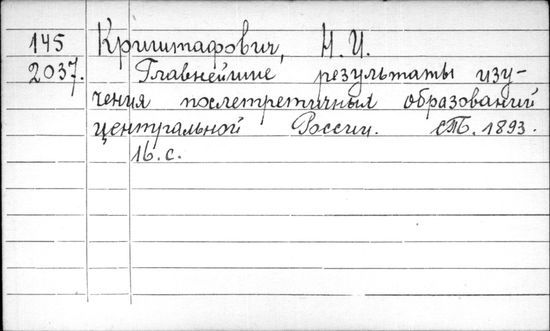 145 Криштафович, Н. И.
2037. Главнейшие результаты изу-
чения послетретичных образований
центральной России. СПб. 1893.
16. с.